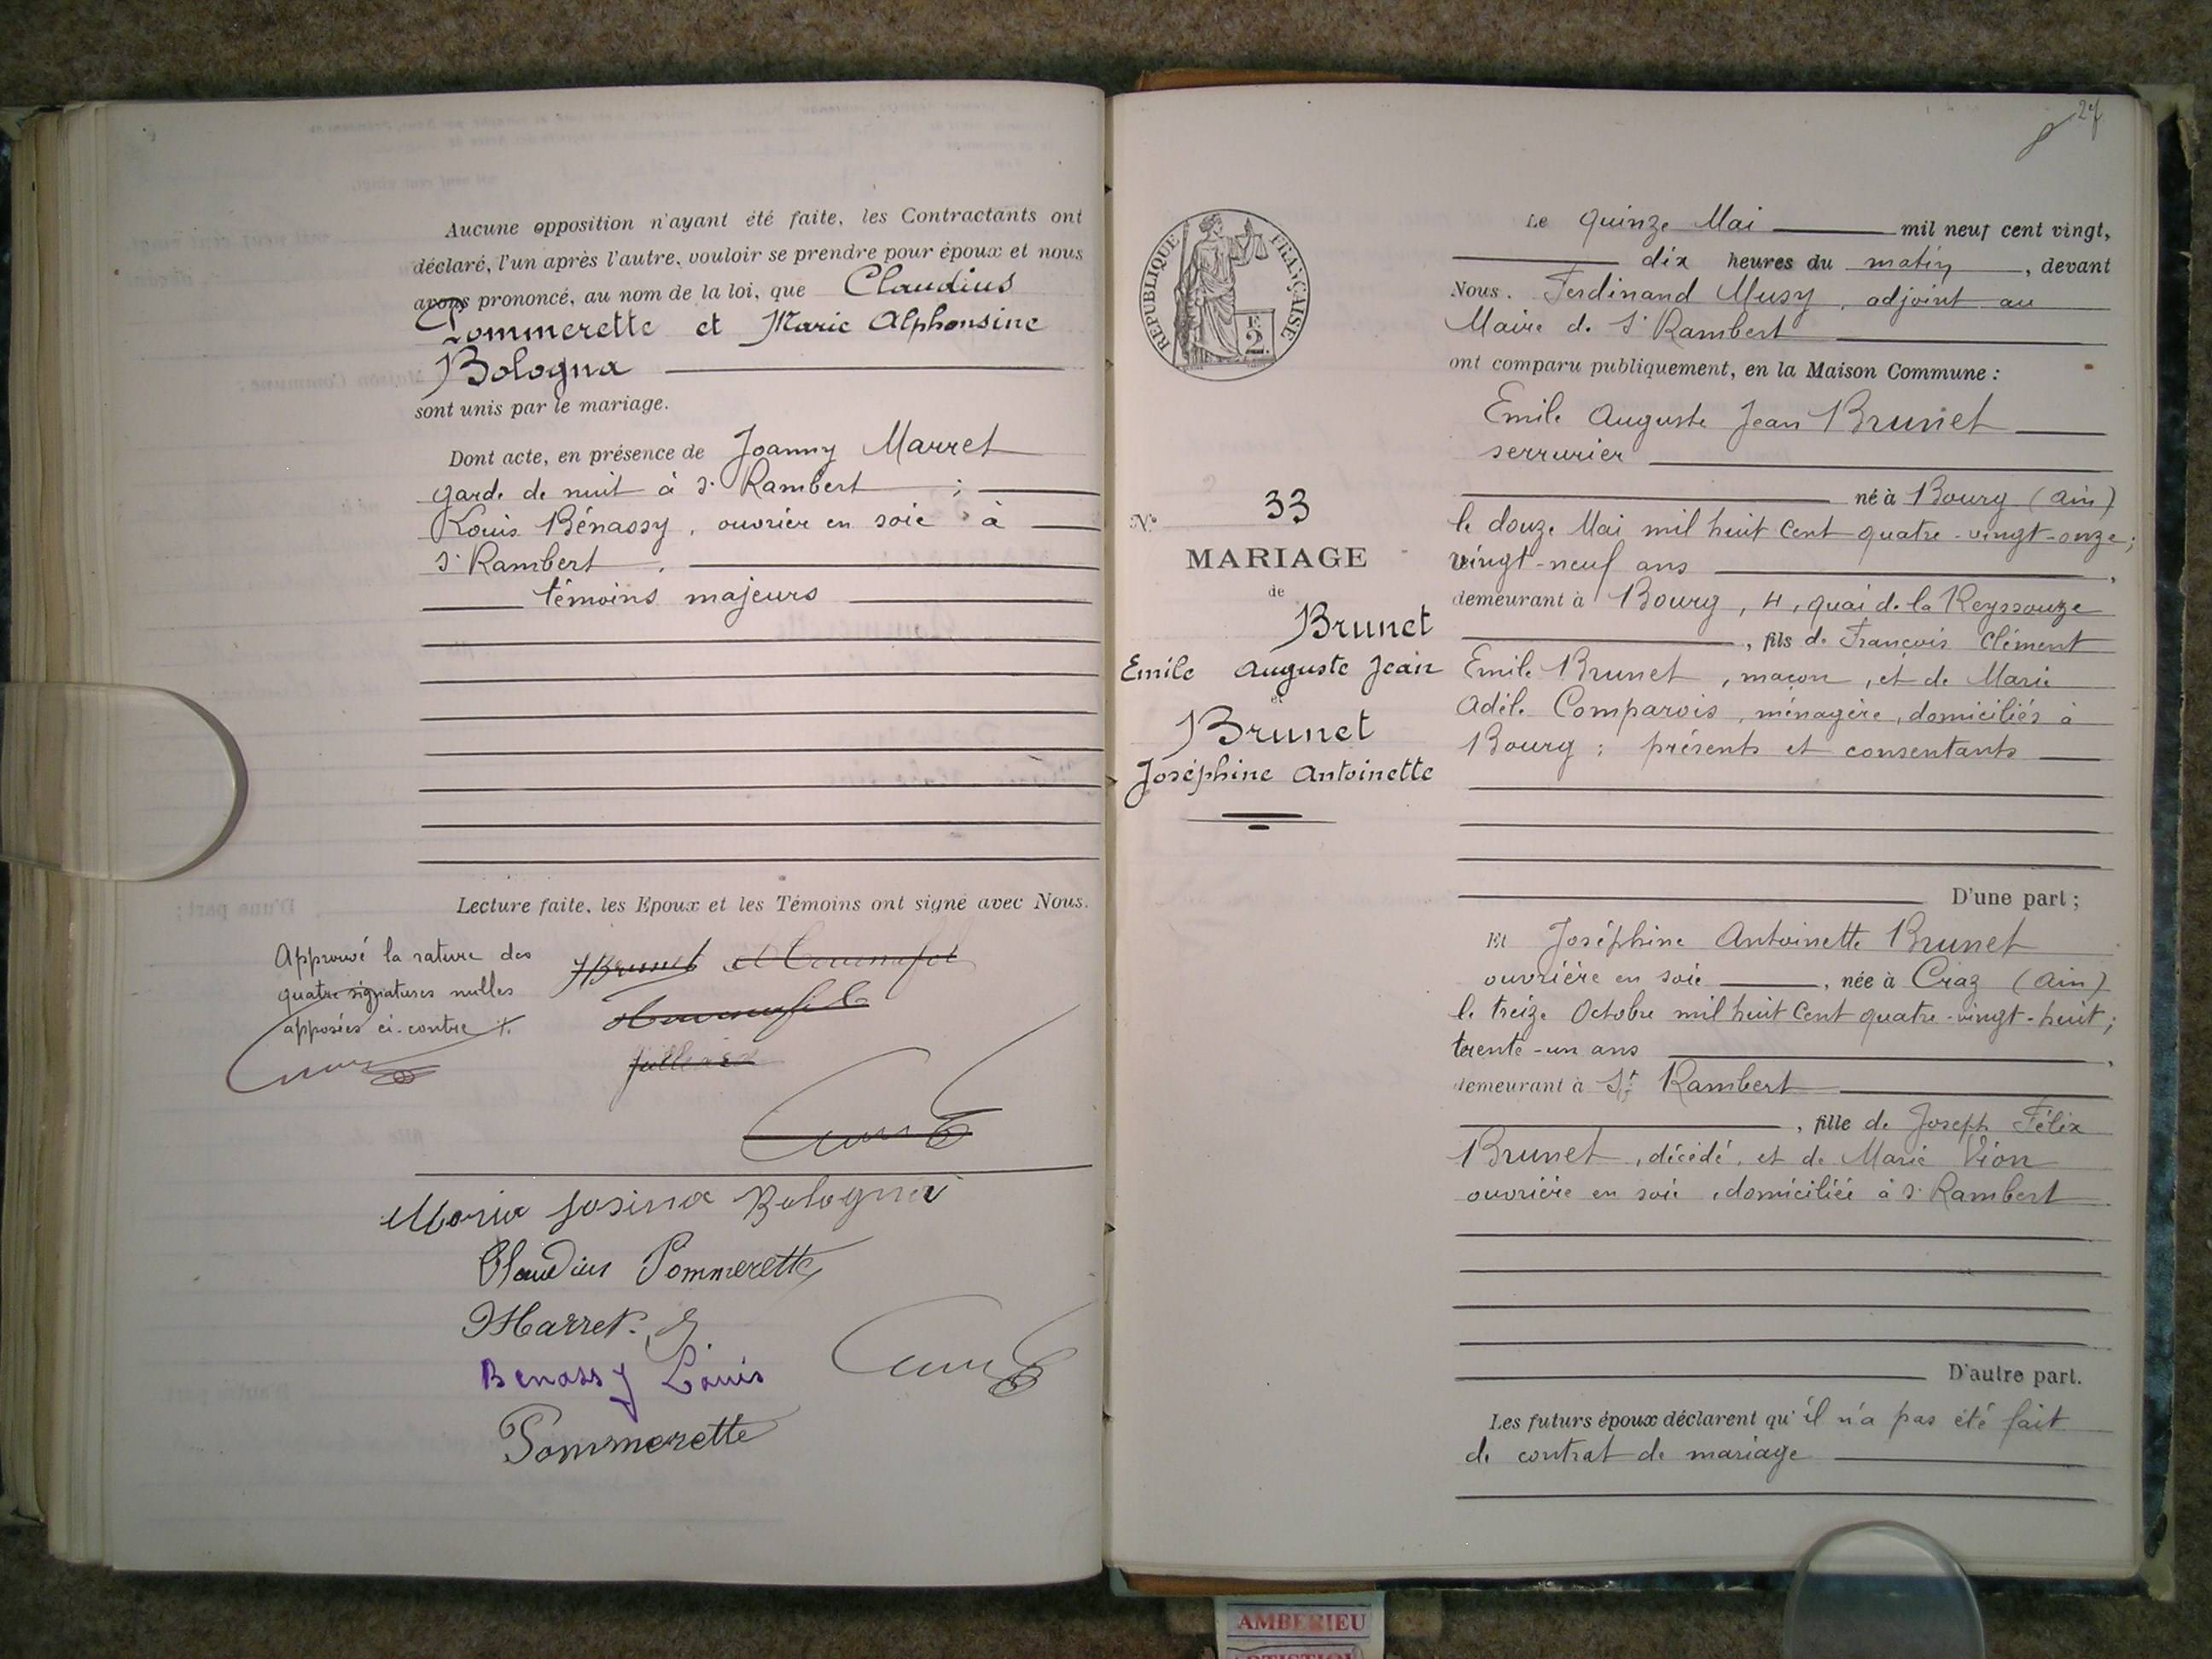 Aucune opposition n'ayant été faite, les Contractants ont
déclaré, l'un après l'autre, vouloir se prendre pour époux et nous
avons prononcé, au nom de la loi, que Claudius
Pommerette et Marie Alphonsine
Bologna
sont unis par le mariage.
Dont acte, en présence de Joanny Marret
garde de nuit à St Rambert ;
Louis Bénassy, ouvrier en soie à
St Rambert,
témoins majeurs
Lecture faite, les Epoux et les Témoins ont signé avec Nous.
Approuvé la rature des
quatre signatures nulles
apposées ci-contre
JBrunet
Maria Bologna
Claudius Pommerette
Marret
Benassy Louis
Pommerette
27
REPUBLIQUE FRANÇAISE
2
N° 33
MARIAGE
de
Brunet
Emile Auguste Jean
et
Brunet
Joséphine Antoinette
Le quinze Mai mil neuf cent vingt,
dix heures du matin, devant
Nous. Ferdinand Musy, adjoint au
Maire de St Rambert
ont comparu publiquement, en la Maison Commune :
Emile Auguste Jean Brunet
serrurier
né à Bourg (Ain)
le douze Mai mil huit cent quatre-vingt-onze;
vingt-neuf ans,
demeurant à Bourg, 4, quai de la Reyssouze
, fils de François Clément
Emile Brunet, maçon, et de Marie
Adèle Comparois, ménagère, domiciliés à
Bourg ; présents et consentants
D'une part ;
Et Joséphine Antoinette Brunet
ouvrière en soie, née à Craz (Ain)
le treize Octobre mil huit cent quatre-vingt-huit;
trente-un ans,
demeurant à St Rambert
, fille de Joseph Félix
Brunet, décédé, et de Marie Vion
ouvrière en soie, domiciliée à St Rambert
D'autre part.
Les futurs époux déclarent qu'il n'a pas été fait
de contrat de mariage
AMBERIEU